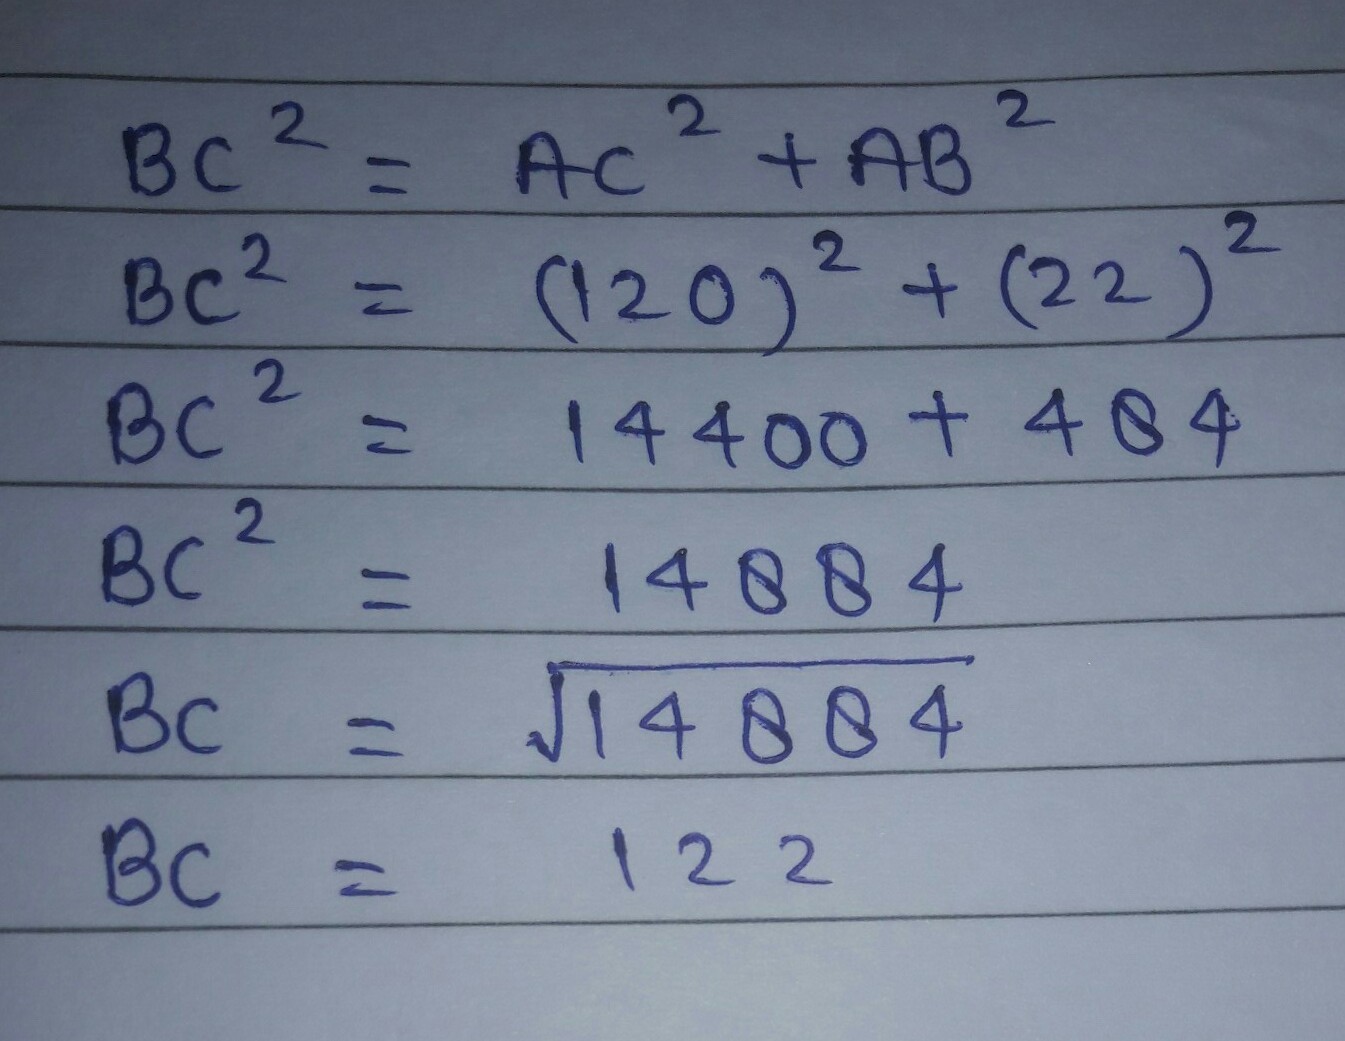 BC² = AC² + AB²
BC² = (120)² + (22)²
BC² = 14400 + 484
BC² = 14884
BC = √14884
BC = 122